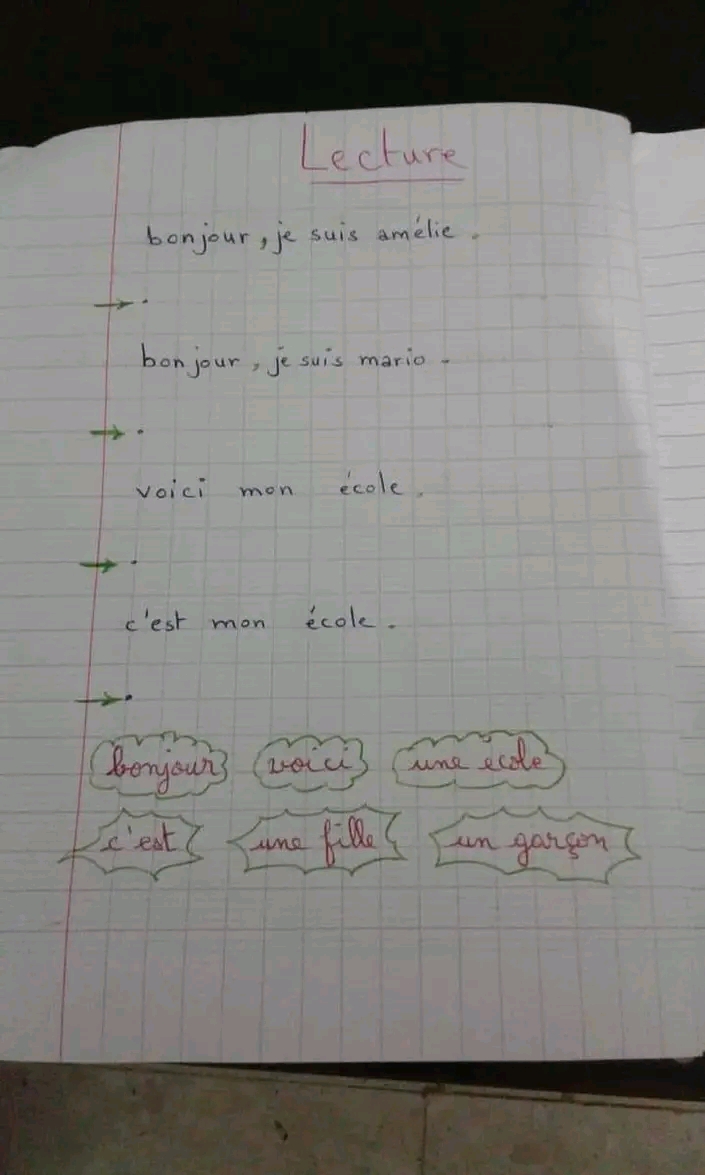 Lecture
bonjour, je suis amélie.
bonjour, je suis mario.
voici mon école.
c'est mon école.
bonjour voici une école
c'est une fille un garçon